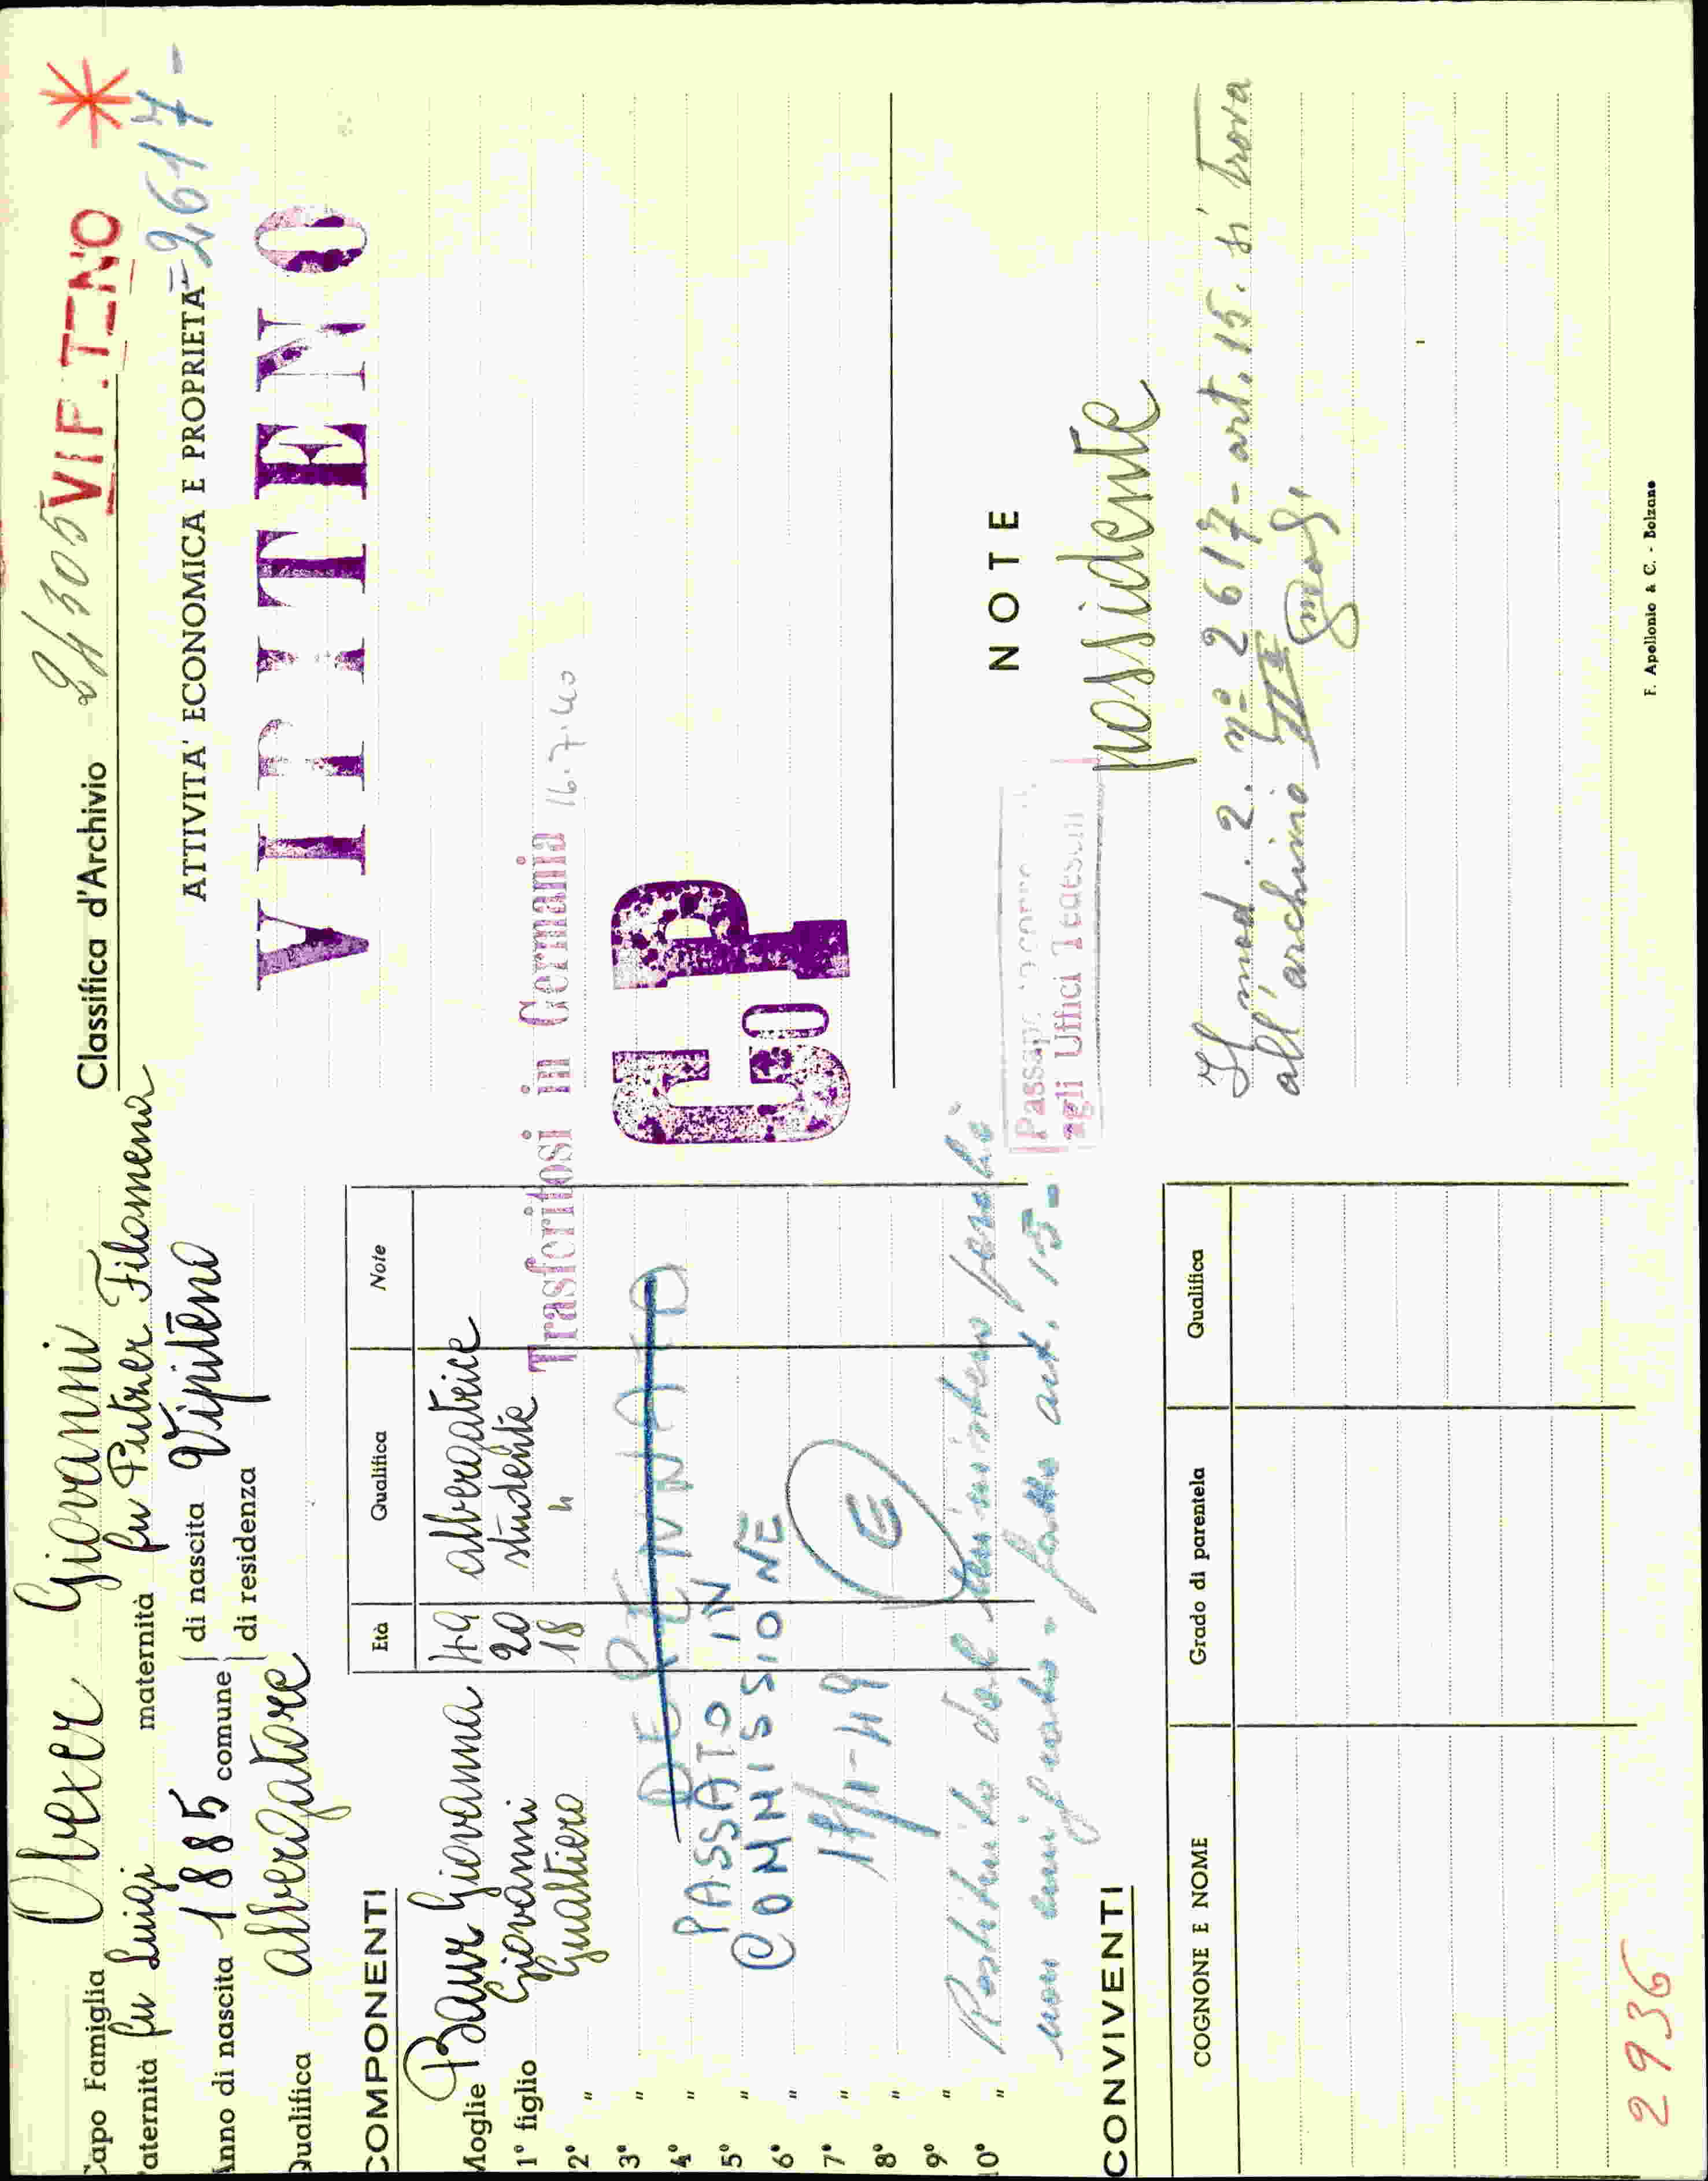 Capo Famiglia Obexer Giovanni
Paternità fu Luigi maternità fu Putzer Filomena
Anno di nascita 1885 comune di nascita Vipiteno
di residenza
Qualifica albergatore
COMPONENTI
Età Qualifica Note
Moglie Baur Giovanna 49 albergatrice
1° figlio Giovanni 20 studente
2° " Gualtiero 18 "
3° "
4° "
PASSATO IN
5° "
COMMISSIONE
6° "
7° "
E
8° "
9° "
10° "
Restituito dal ministero perchè
art. 15 -
CONVIVENTI
COGNOME E NOME Grado di parentela Qualifica
2936
Classifica d'Archivio 24305 VIPITENO
ATTIVITA' ECONOMICA E PROPRIETA' =2617-
VIPITENO
Trasferitosi in Germania 16.7.40
GoP
NOTE
agli Uffici Tedeschi
possidente
Il mod. 2. n° 2617 - art. 15. si trova
all'archivio III E
F. Apollonio & C. - Bolzano